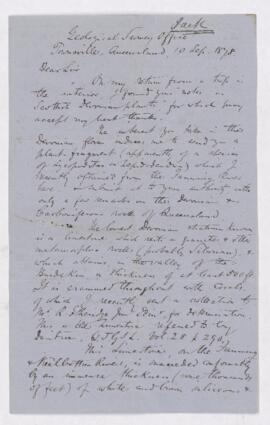 Jack
Geological Survey Office
Townsville, Queensland 10 Sep. 1878
Dear Sir
On my return from a trip in
the interior I found your "notes on
Scottish Devonian plants" for which pray
accept my best thanks.
The interest you take in this
Devonian flora induces me to send you a
plant-fragment (apparently of a stem
of Lepidodendron) which I
recently obtained from the Fanning River
here. I submit to your authority with
only a few remarks on the Devonian &
Carboniferous rocks of Queensland
The lowest Devonian stratum known
is a limestone which rests on granites & other
metamorphic rocks (probably Silurian) &
which attains, in the valley of the
Burdekin a thickness of at least feet
It is crammed throughout with Corals
of which I recently sent a collection to
Mr. R. Etheridge Junr. Edinr. for determination.
This is the limestone referred to by
Daintree, Q.J.G.S. Vol. 28 p 290.
This limestone, on the Fanning
& Rivers, is succeeded conformably
by an immense thickness (some thousands
of feet) of white and brown &